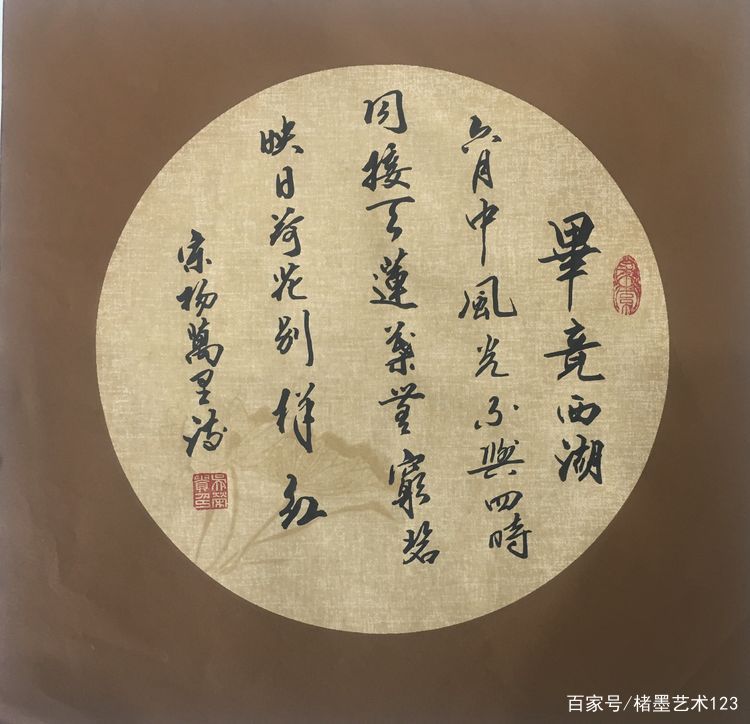 畢竟西湖
六月中風光不與四時
同接天蓮葉無窮碧
映日荷花別樣紅
宋楊萬里詩
百家号/楮墨艺术123